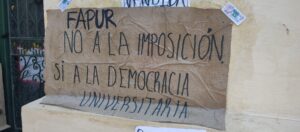 FAPUR
NO A LA IMPOSICIÓN.
SÍ A LA DEMOCRACIA
UNIVERSITARIA